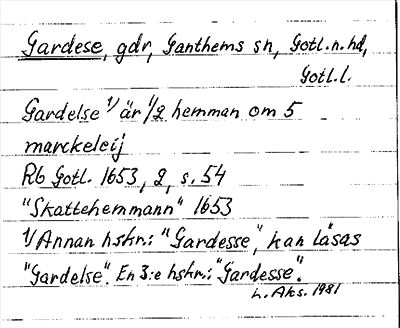 Gardese, gdr, Ganthems sn, Gotl. n. hd,
Gotl. l.
Gardelse 1/ är 1/2 hemman om 5
marckeleij
Rb Gotl. 1653, 2, s. 54
"Skattehemmann" 1653
1/ Annan hskr.: "Gardesse", kan läsas
"Gardelse". En 3:e hskr.: "Gardesse".
L. Aks. 1981